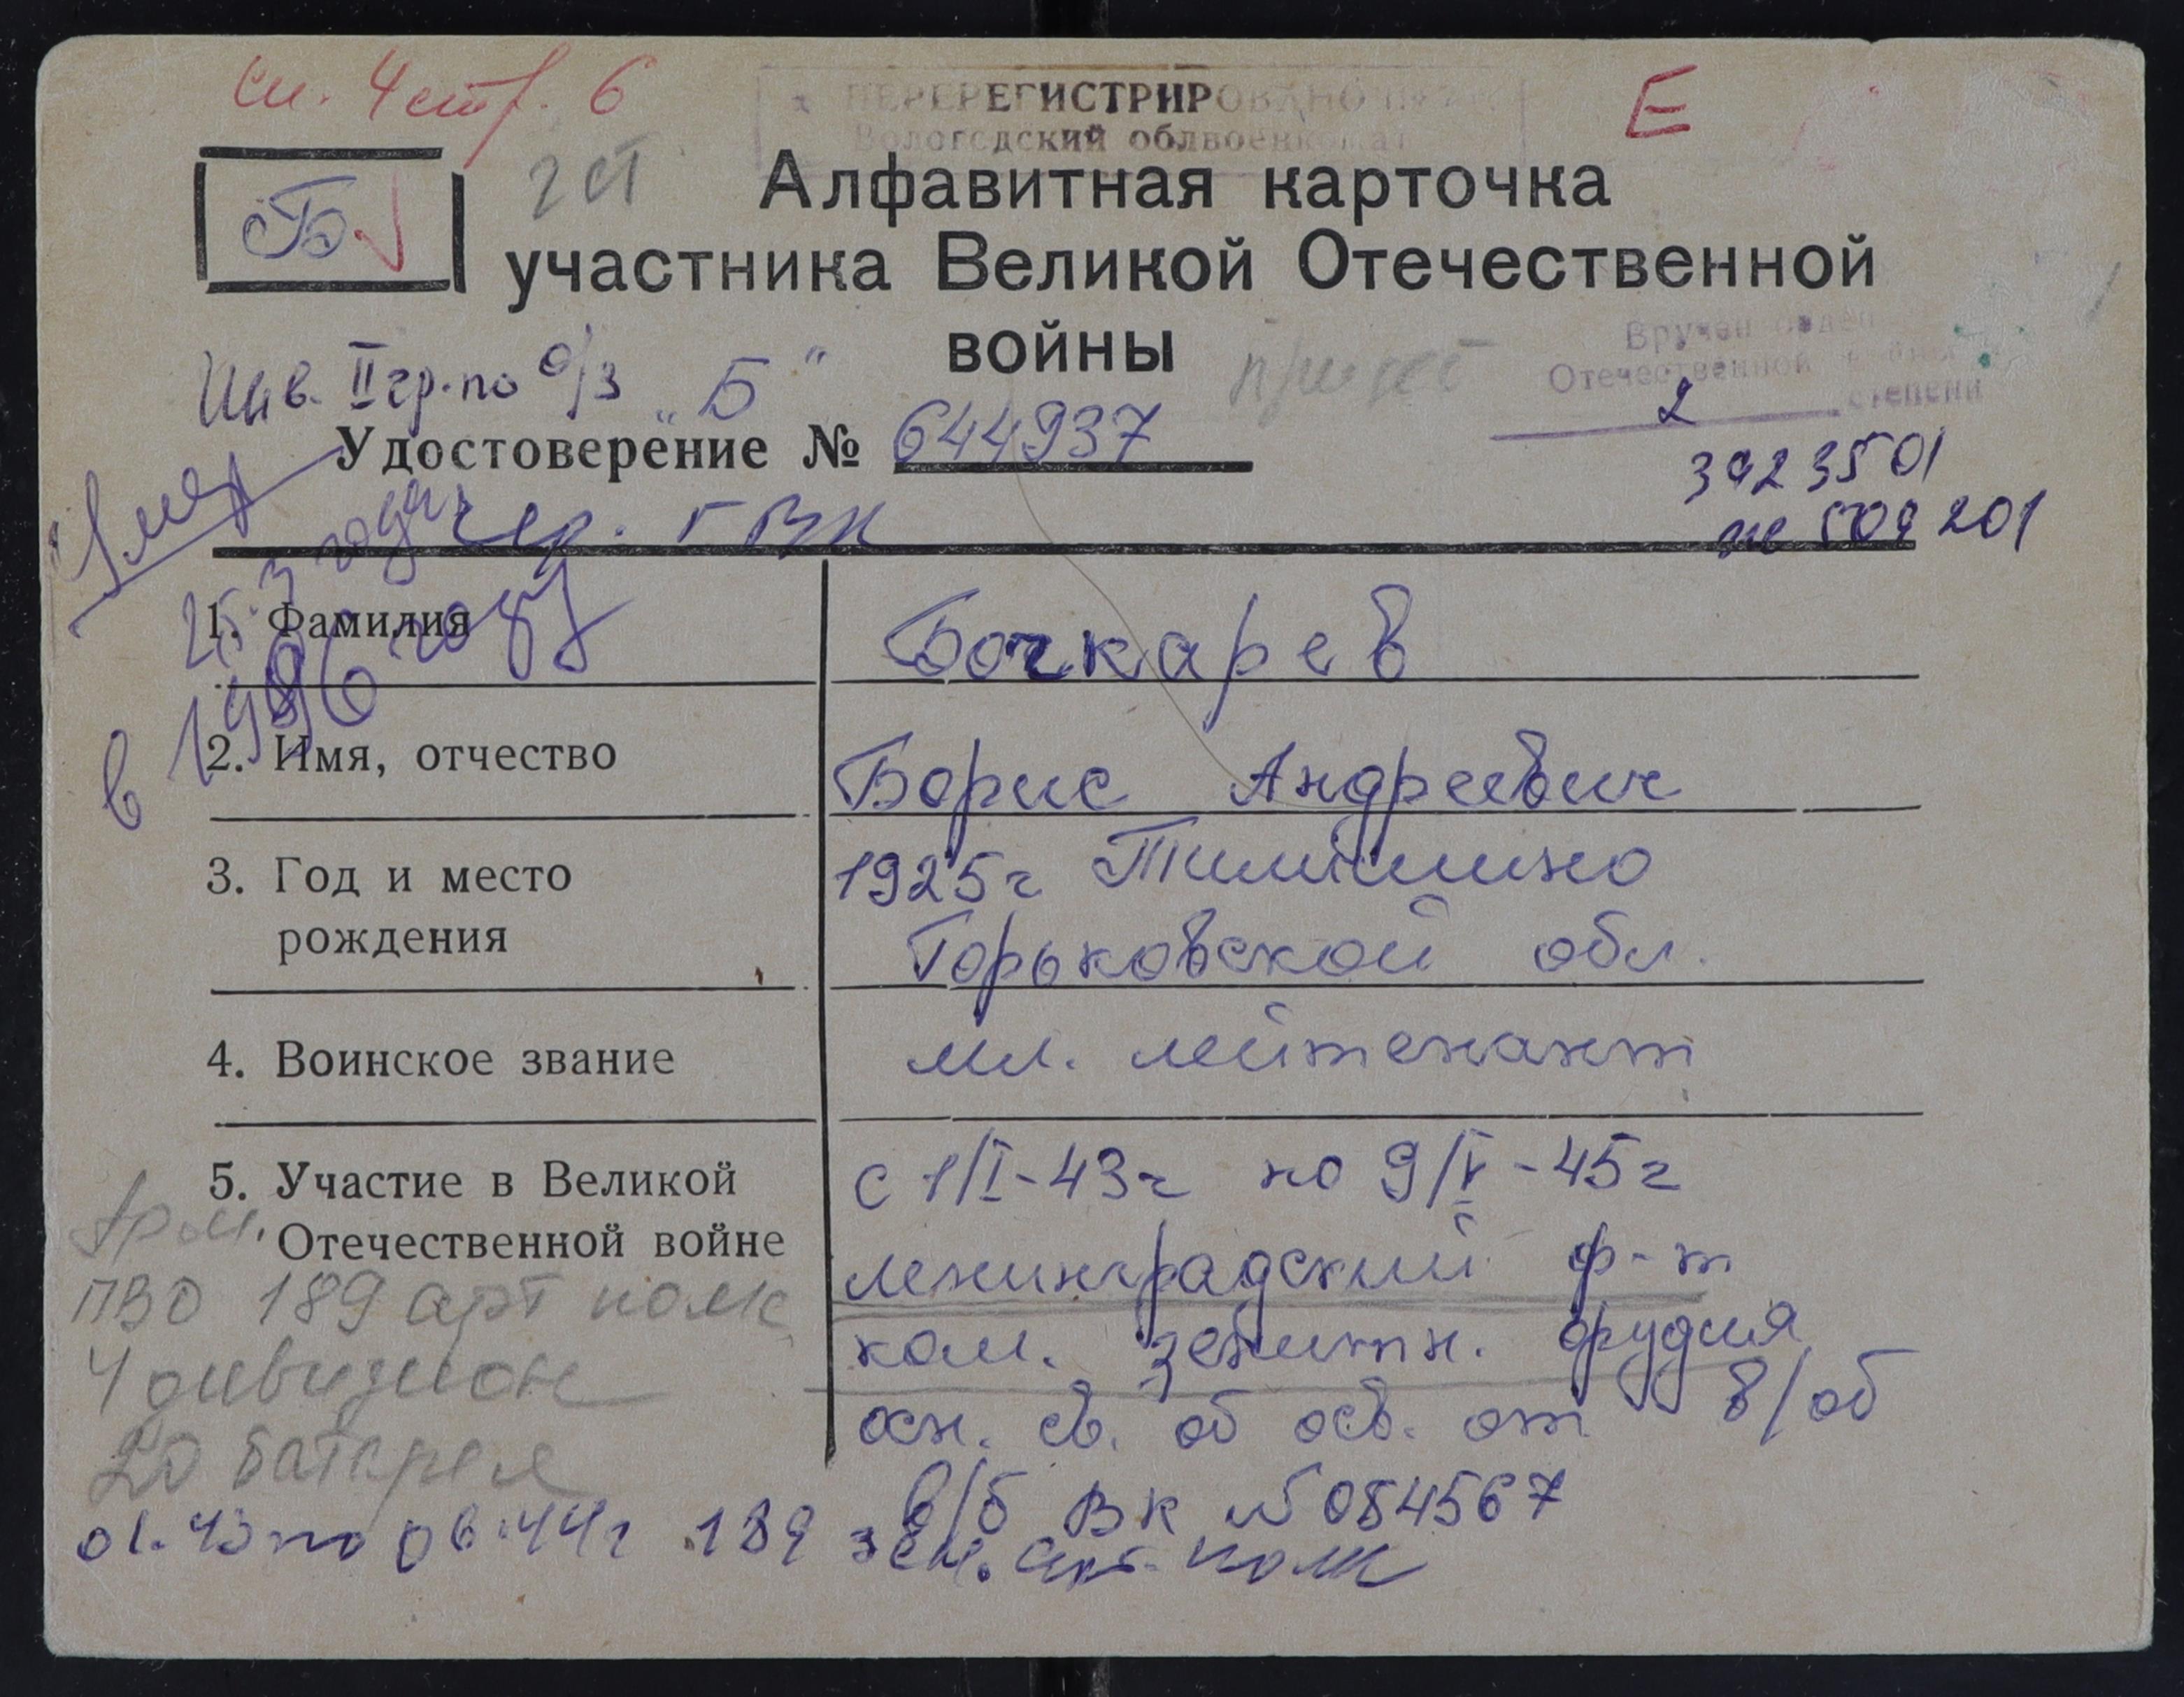 сп. 4 стр. 6
ПЕРЕРЕГИСТРИРОВАНО
Вологодский облвоенкомат
Е
Б
2 ст
Алфавитная карточка
участника Великой Отечественной
войны
Инв. II гр. по о/з „Б"
Вручен орден
Отечественной войны
2 степени
Удостоверение № 644937
3923501
509201
Чер. ГВК
Умер
25.3 года
в 1996 году
1. Фамилия
Бочкарев
2. Имя, отчество
Борис Андреевич
3. Год и место
рождения
1925г
Горьковской обл.
4. Воинское звание
мл. лейтенант
5. Участие в Великой
Отечественной войне
с 1/I-43г по 9/V-45г
Ленинградский ф-т
ком. зенитн. орудия
осн. св. об осв. от в/об
в/б ВК № 084567
Арм.
ПВО 189 арт полк
4 дивизион
20 батарея
01.43 по 06.44г 189 зен. арт. полк